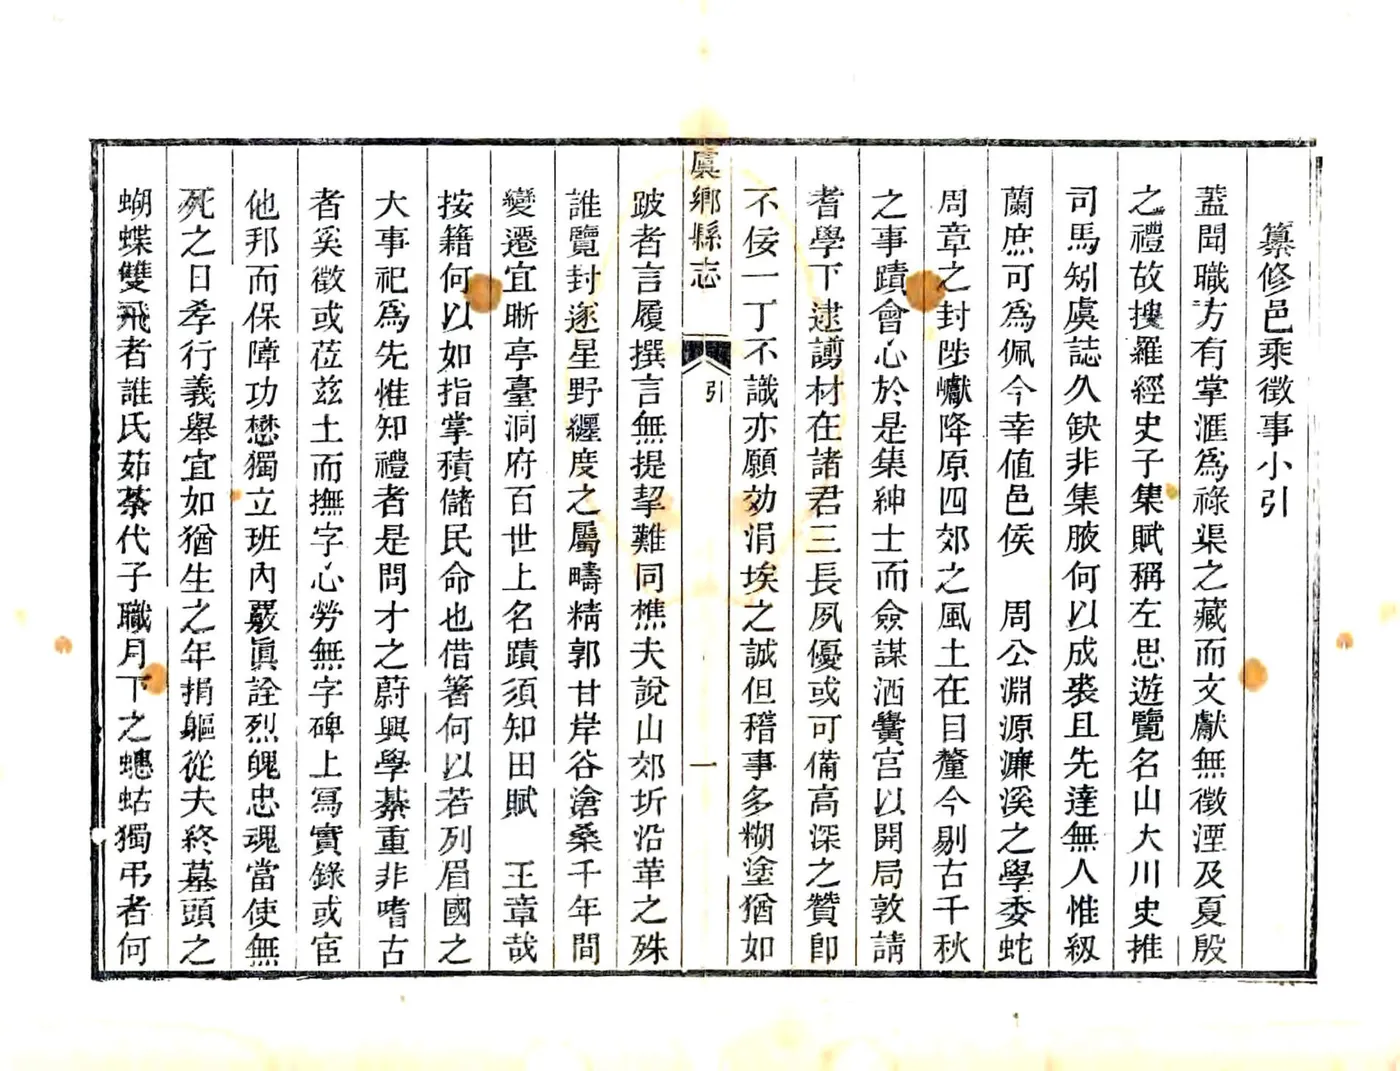 纂修邑乘徵事小引
蓋聞職方有掌滙爲祿渠之藏而文獻無徵湮及夏殷
之禮故搜羅經史子集賦稱左思遊覽名山大川史推
司馬矧虞誌久缺非集腋何以成裘且先達無人惟紉
蘭庶可爲佩今幸値邑侯 周公淵源濂溪之學委蛇
周章之封陟巘降原四郊之風土在目釐今剔古千秋
之事蹟會心於是集紳士而僉謀洒黌宮以開局敦請
耆學下逮譾材在諸君三長夙優或可備高深之贊卽
不佞一丁不識亦願効涓埃之誠但稽事多糊塗猶如
虞鄉縣志
引
一
跛者言履撰言無提挈難同樵夫說山郊圻沿革之殊
誰覽封遂星野纏度之屬疇精郭甘岸谷滄桑千年間
變遷宜晰亭臺洞府百世上名蹟須知田賦 王章哉
按籍何以如指掌積儲民命也借箸何以若列眉國之
大事祀爲先惟知禮者是問才之蔚興學綦重非嗜古
者奚徵或莅玆土而撫字心勞無字碑上寫實錄或宦
他邦而保障功懋獨立班內嚴眞詮烈魄忠魂當使無
死之日孝行義舉宜如猶生之年捐軀從夫終墓頭之
蝴蝶雙飛者誰氏茹荼代子職月下之蟪蛄獨弔者何